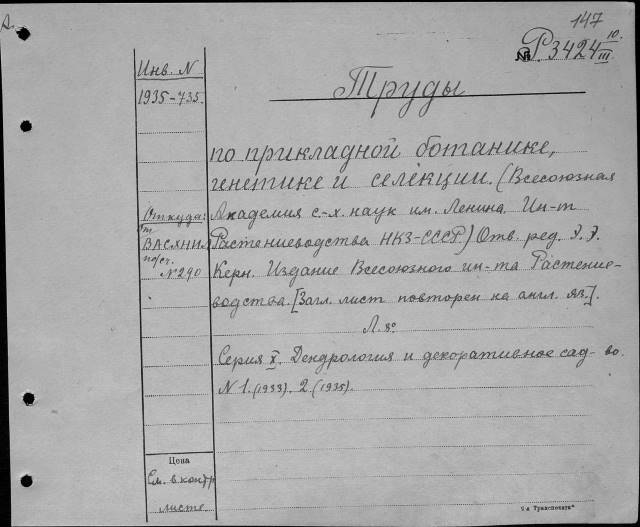 147
№ Р 3424 10. III.
Инв. N
1935-735.
Труды
по прикладной ботанике,
генетике и селекции. (Всесоюзная
Откуда:
Академия с.-х. наук им. Ленина. Ин-т
от
ВАСХНИЛ
Растениеводства НКЗ-СССР) Отв. ред. Э. Э.
N 290
Керн. Издание Всесоюзного ин-та Растение-
водства. [Загл. лист повторен на англ. яз.].
Л. 8°
Серия X. Дендрология и декоративное сад-во.
N 1. (1933). 2 (1935).
Цена
См. в контр
листе